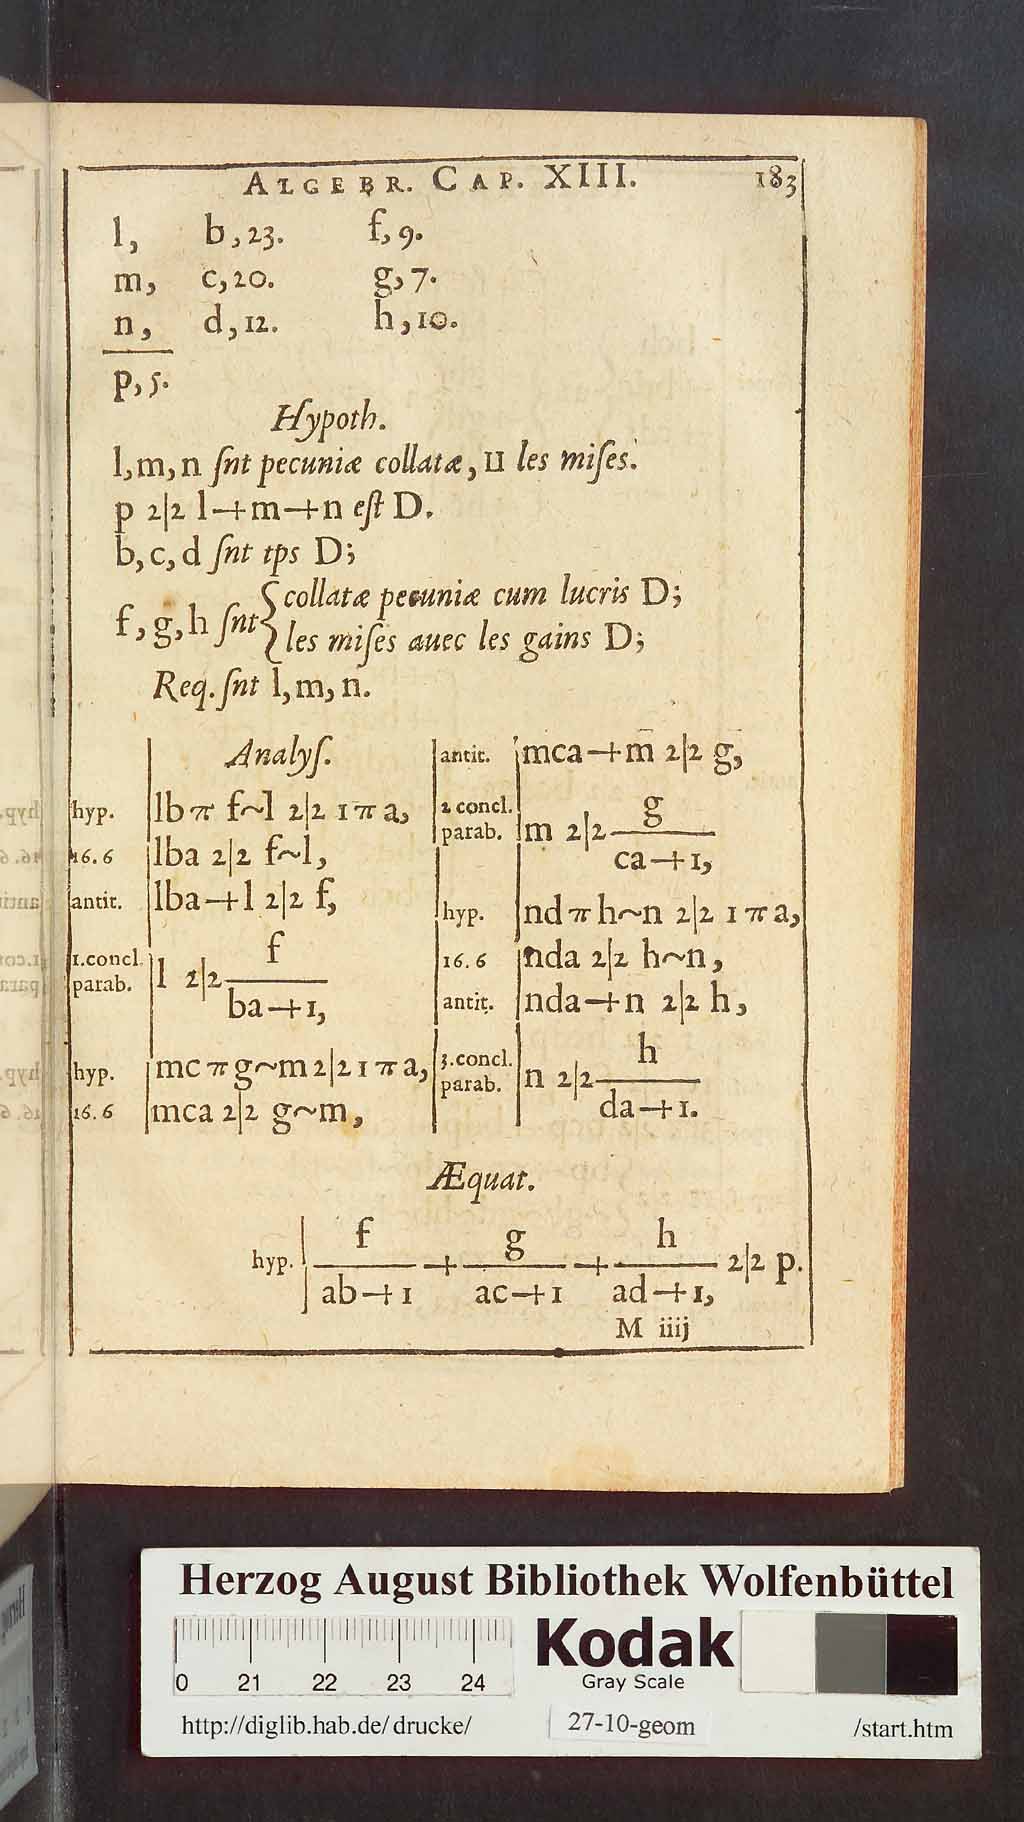 ALGEBR. CAP. XIII. 183
l, b,23. f,9.
m, c,20. g,7.
n, d,12. h,10.
p,5.
Hypoth.
l,m,n ſnt pecuniæ collatæ, II les miſes.
p 2|2 l-+m-+n eſt D.
b,c,d ſnt tps D;
f,g,h ſnt { collatæ pecuniæ cum lucris D;
les miſes auec les gains D;
Req. ſnt l,m,n.
Analyſ.
hyp. lb π f~l 2|2 1 π a,
16.6 lba 2|2 f~l,
antit. lba-+l 2|2 f,
1.concl. parab. l 2|2 f
ba-+1,
hyp. mc π g~m 2|2 1 π a,
16.6 mca 2|2 g~m,
antit. mca-+m 2|2 g,
2 concl. parab. m 2|2 g
ca-+1,
hyp. nd π h~n 2|2 1 π a,
16.6 nda 2|2 h~n,
antit. nda-+n 2|2 h,
3.concl. parab. n 2|2 h
da-+1.
Æquat.
hyp. f -+ g -+ h 2|2 p.
ab-+1 ac-+1 ad-+1,
M iiij
Herzog August Bibliothek Wolfenbüttel
0 21 22 23 24
Kodak
Gray Scale
http://diglib.hab.de/drucke/ 27-10-geom /start.htm